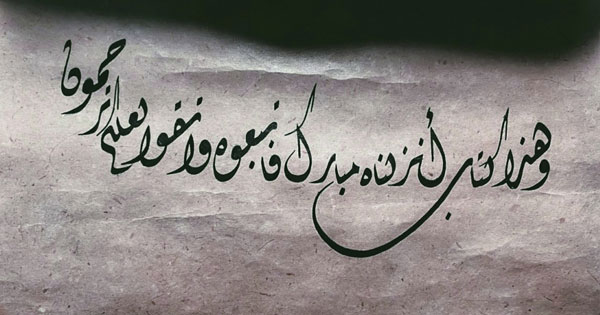 وهذا كتاب أنزلناه مبارك فاتبعوه واتقوا لعلكم ترحمون